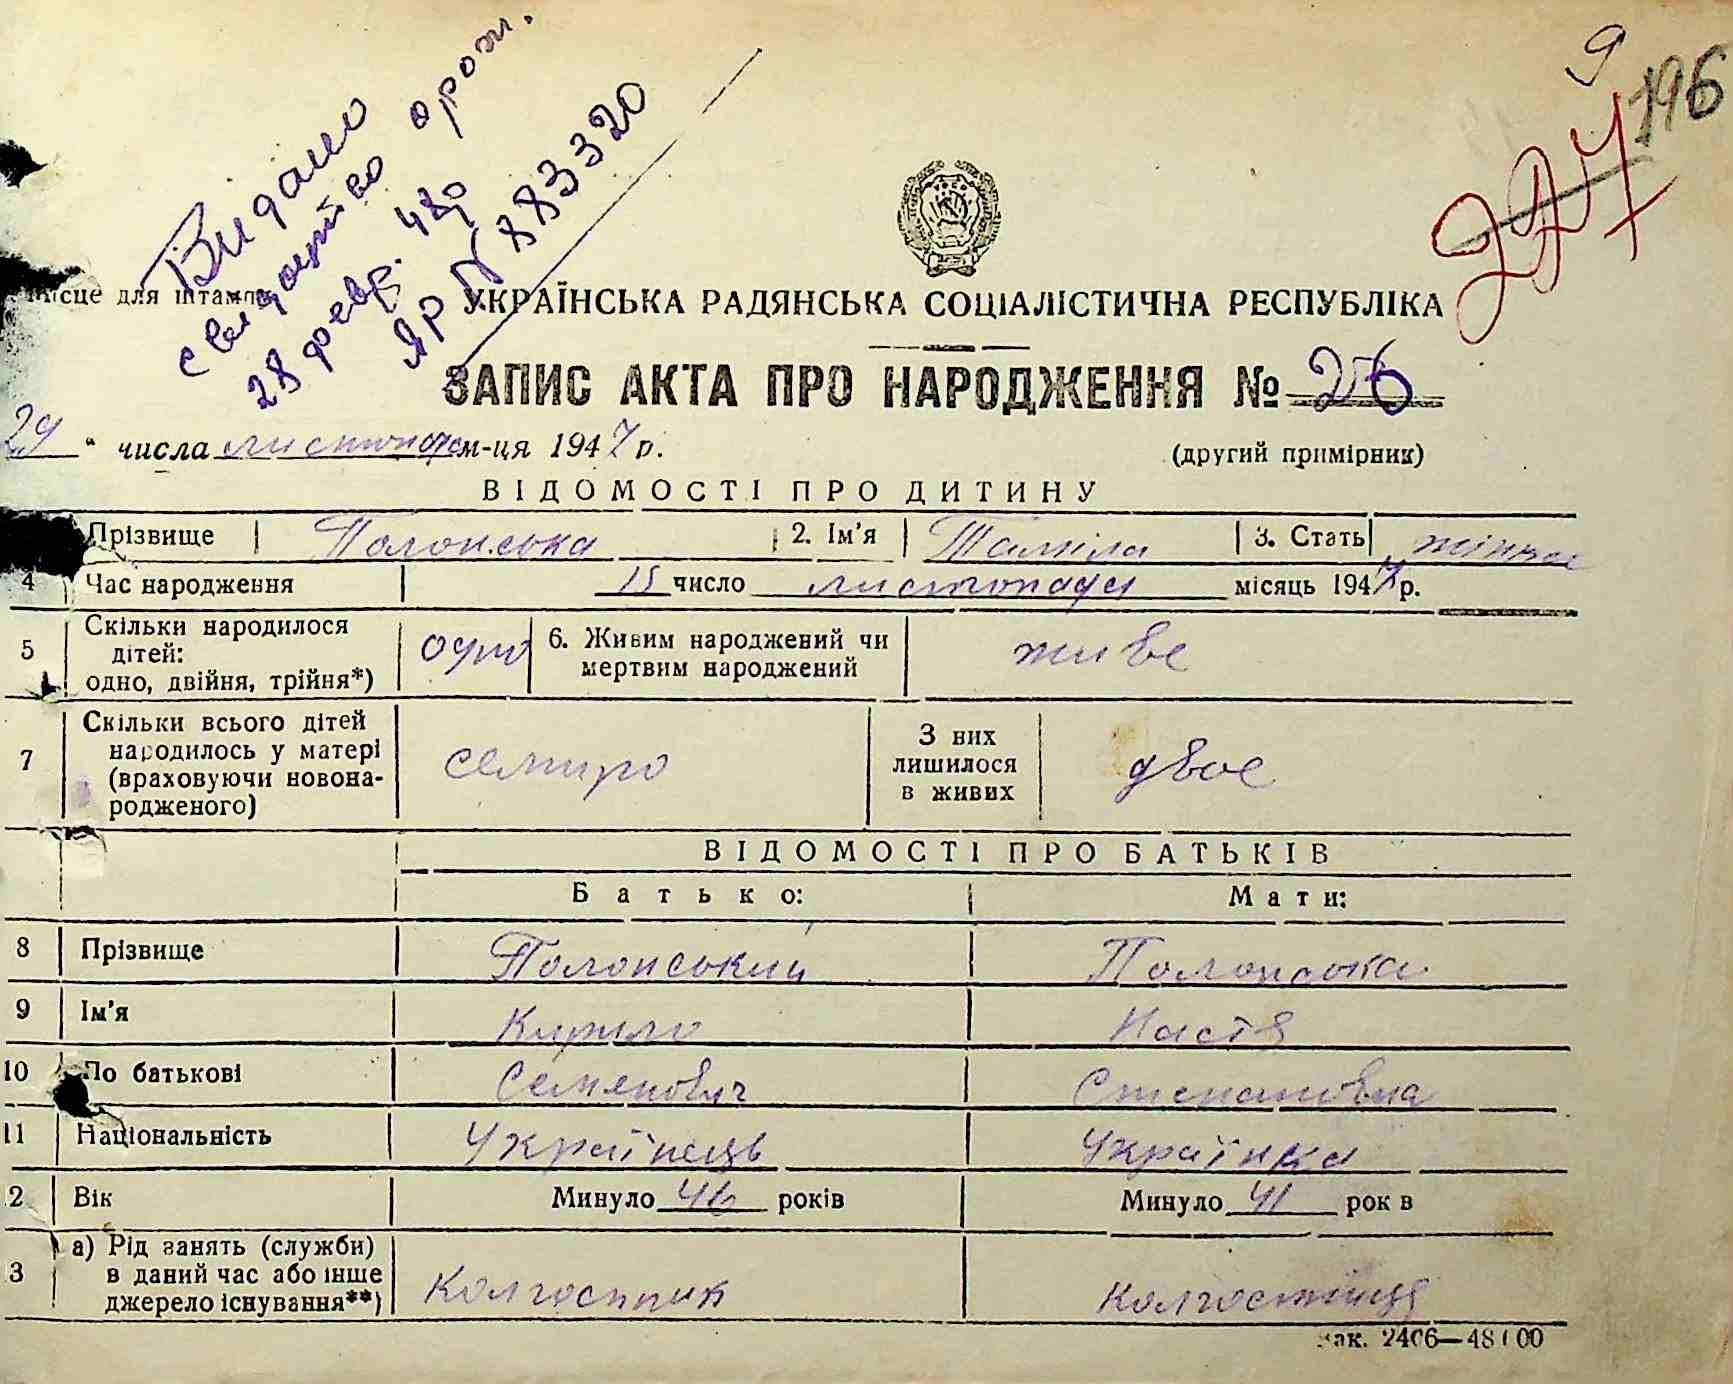 9
196
227
Видано
свидоцтво о рож.
28 февр. 48р
ЯР № 883320
Місце для штампа
УКРАЇНСЬКА РАДЯНСЬКА СОЦІАЛІСТИЧНА РЕСПУБЛІКА
ЗАПИС АКТА ПРО НАРОДЖЕННЯ № 26
29 " числа листопада м-ця 1947 р.
(другий примірник)
ВІДОМОСТІ ПРО ДИТИНУ
Прізвище Полонська 2. Ім'я Таміла 3. Стать жіноче
4 Час народження 15 число листопада місяць 1947 р.
5 Скільки народилося дітей: одно, двійня, трійня*) одно 6. Живим народжений чи мертвим народжений живе
7 Скільки всього дітей народилось у матері (враховуючи новонародженого) семиро З них лишилося в живих двоє
ВІДОМОСТІ ПРО БАТЬКІВ
Батько: Мати:
8 Прізвище Полонський Полонська
9 Ім'я Кирило Настя
10 По батькові Семянович Степановна
11 Національність Українець Українка
2 Вік Минуло 46 років Минуло 41 рок в
3 а) Рід занять (служби) в даний час або інше джерело існування**) Колгоспник Колгоспниця
Зак. 2406—48100